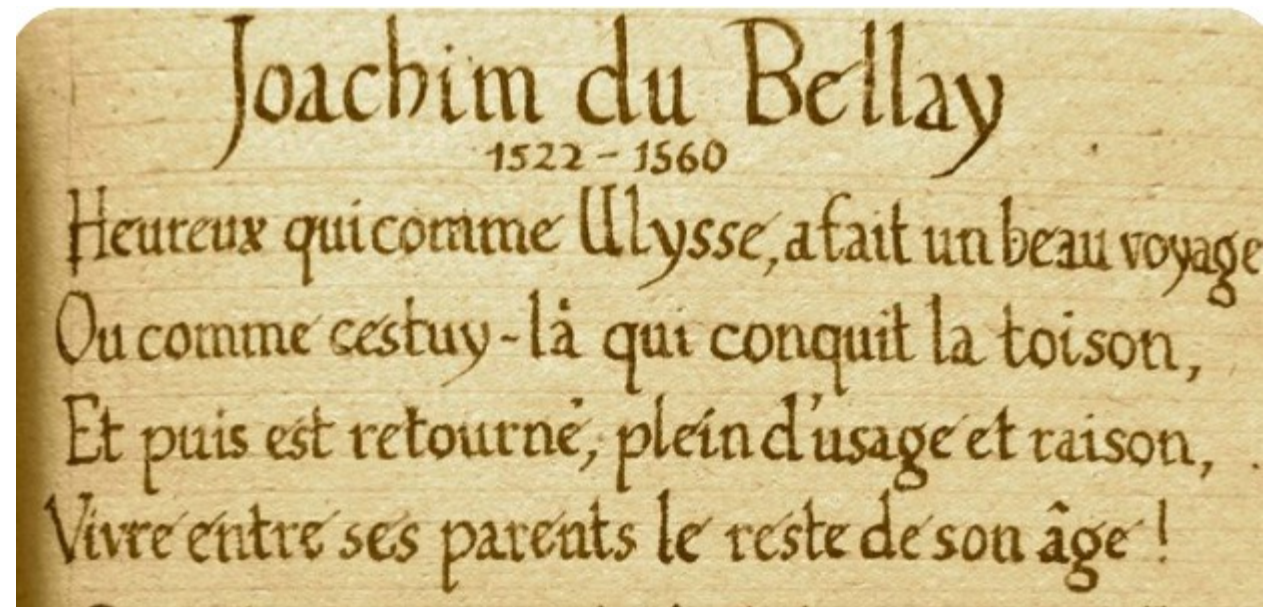 Joachim du Bellay
1522 - 1560
Heureux qui comme Ulysse, a fait un beau voyage
Ou comme cestuy-là qui conquit la toison,
Et puis est retourné, plein d'usage et raison,
Vivre entre ses parents le reste de son âge !